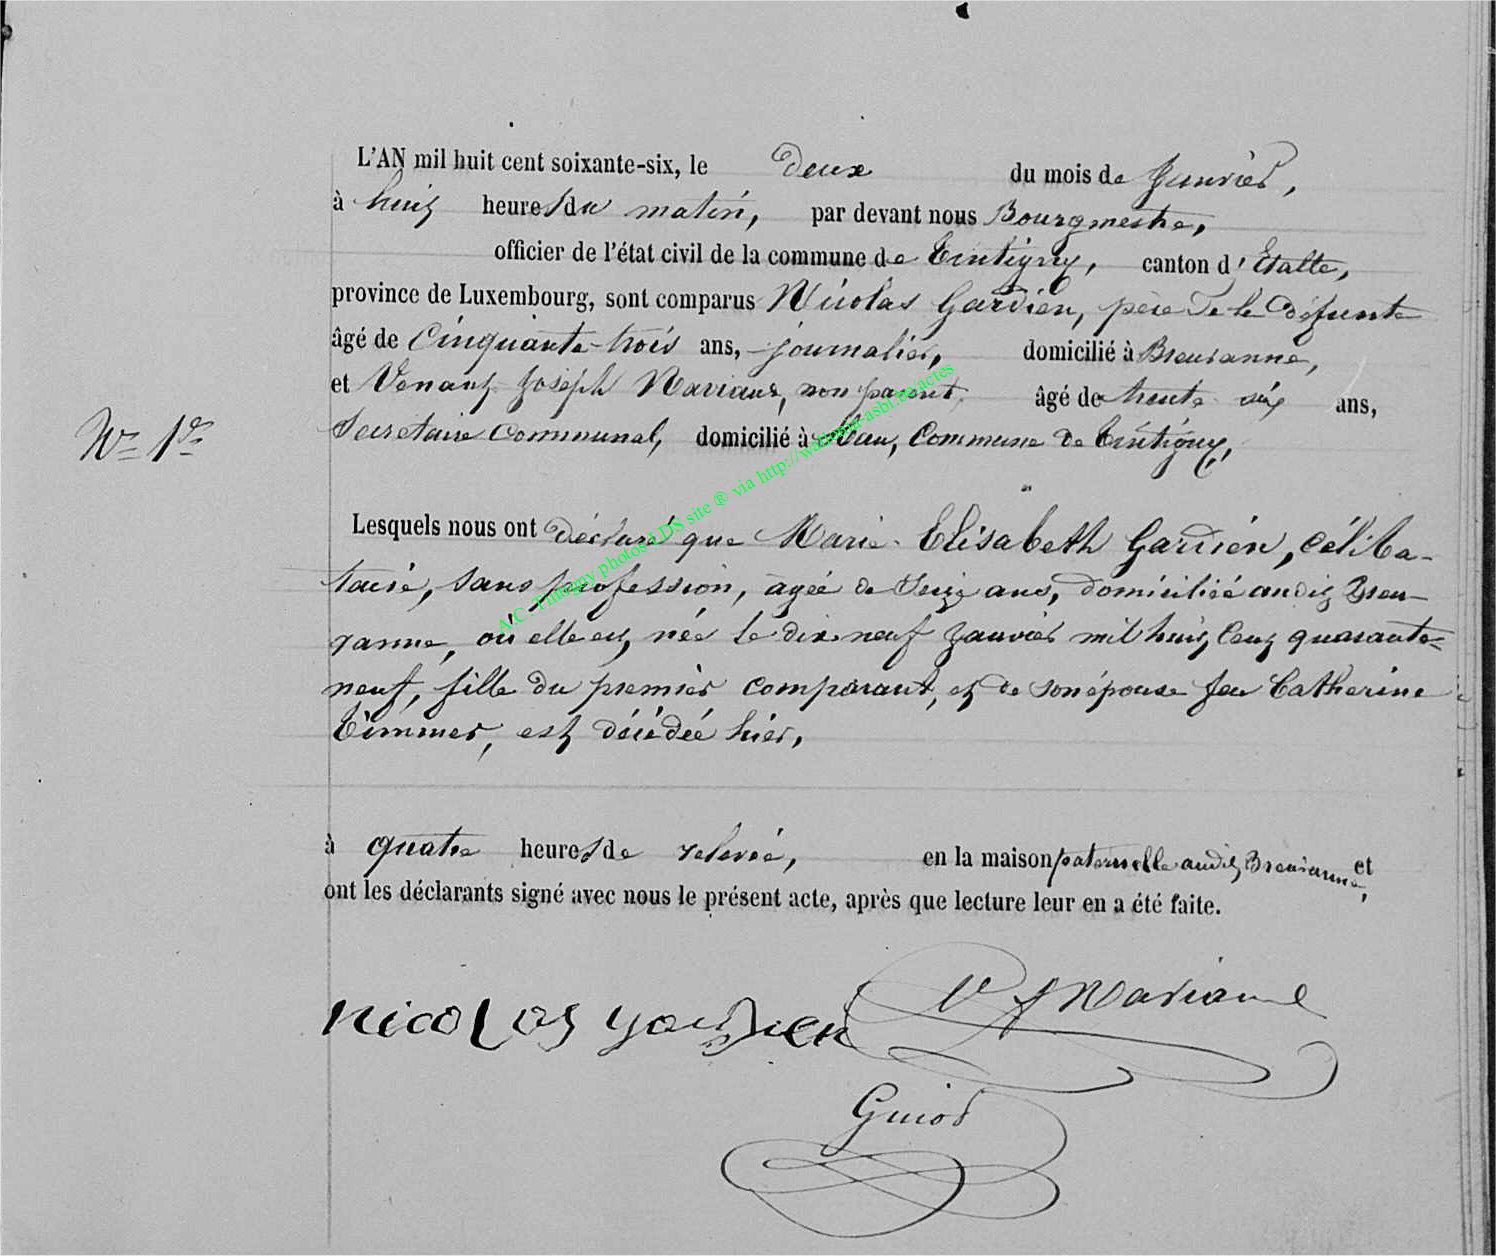 L'AN mil huit cent soixante-six, le deux du mois de Janvier,
à huit heures du matin, par devant nous Bourgmestre,
officier de l'état civil de la commune de Tintigny, canton d'Etalle,
province de Luxembourg, sont comparus Nicolas Gardien, père de la défunte
âgé de Cinquante-trois ans, journalier, domicilié à Breuvanne,
et Venant Joseph Naviaux, non parent, âgé de trente six ans,
Secretaire Communal, domicilié à Han, Commune de Tintigny,
N° 1er
Lesquels nous ont déclaré que Marie Elisabeth Gardien, céliba-
taire, sans profession, agée de Seize ans, domiciliée audit Breu-
vanne, où elle est née le dix neuf Janvier mil huit Cent quarante-
neuf, fille du premier comparant, et de son épouse feu Catherine
Timmer, est décédée hier,
à quatre heures de relevée, en la maison paternelle audit Breuvanne, et
ont les déclarants signé avec nous le présent acte, après que lecture leur en a été faite.
nicolas gardien
Guiot
A.C. Tintigny photos LDS site ® via http://wallonia-asbl.be/actes